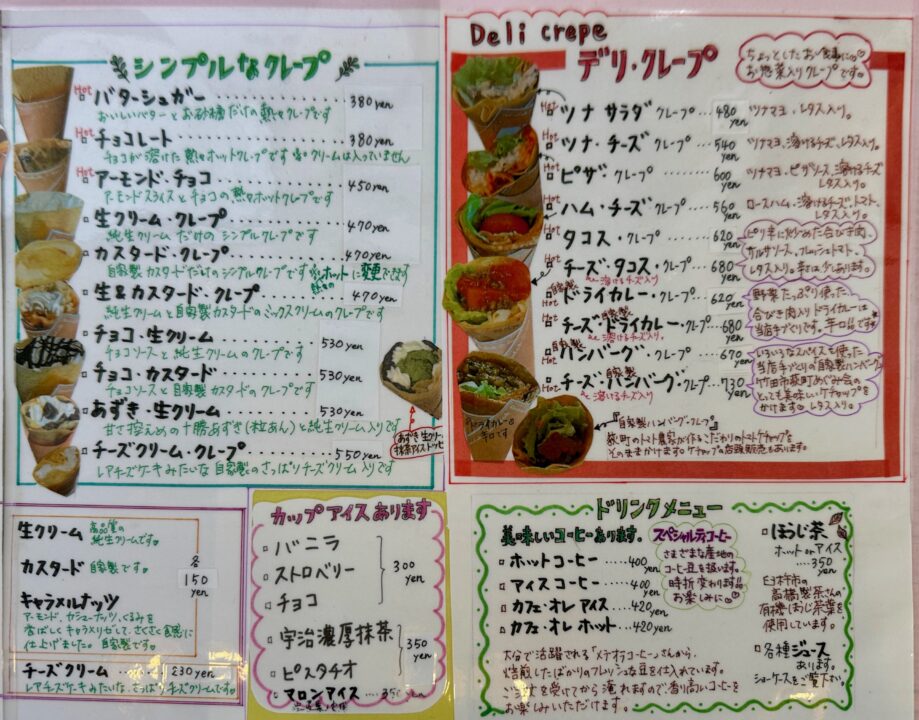 シンプルなクレープ
Hot
バターシュガー ･････ 380yen
おいしいバターとお砂糖だけの熱々クレープです
Hot
チョコレート ･････ 380yen
チョコが溶けた熱々ホットクレープです ※クリームは入っていません
Hot
アーモンド・チョコ ･････ 450yen
アーモンドスライスとチョコの熱々ホットクレープです
生クリーム・クレープ ･････ 470yen
純生クリームだけのシンプルクレープです
カスタード・クレープ ･････ 470yen
自家製カスタードだけのシンプルクレープです ※ホットに変更できます
生&カスタード・クレープ ･････ 470yen
純生クリームと自家製カスタードのミックスクリームのクレープです
チョコ・生クリーム ･････ 530yen
チョコソースと純生クリームのクレープです
チョコ・カスタード ･････ 530yen
チョコソースと自家製カスタードのクレープです
あずき・生クリーム ･････ 530yen
甘さ控えめの十勝あずき(粒あん)と純生クリーム入りです
チーズクリーム・クレープ ･････ 550yen
レアチーズケーキみたいな自家製のさっぱりチーズクリーム入りです
あずき生クリーム
抹茶アイス
Deli crepe
デリ・クレープ
ちょっとしたお食事に
お惣菜入りクレープです。
Hot
ツナサラダ クレープ ････ 480yen
ツナマヨ、レタス入り。
Hot
ツナ・チーズ クレープ ････ 540yen
ツナマヨ、溶けるチーズ、レタス入り。
Hot
ピザ クレープ ････ 600yen
ツナマヨ、ピザソース、溶けるチーズ
レタス入り。
Hot
ハム・チーズ クレープ ････ 560yen
ロースハム、溶けるチーズ、トマト、
レタス入り。
Hot
タコス・クレープ ････ 620yen
ピリ辛に炒めた合びき肉、
サルサソース、フレッシュトマト、
レタス入り。辛さはグレあります。
Hot
チーズ・タコス・クレープ ････ 680yen
溶けるチーズ入り
Hot
自家製
ドライカレー・クレープ ････ 620yen
野菜たっぷり使った、
合びき肉入りドライカレーは
当店手づくりです。辛口です
Hot
自家製
チーズ・ドライカレー・クレープ ････ 680yen
溶けるチーズ入り。
Hot
自家製
ハンバーグ・クレープ ････ 670yen
いろいろなスパイスを使った
当店手づくりの自家製ハンバーグ。
竹田市荻町めぐみ会の
とっても美味しいケチャップを
かけます。レタス入り。
Hot
自家製
チーズ・ハンバーグ・クレープ ････ 730yen
溶けるチーズ入り
ドライカレーは
辛口です
『自家製ハンバーグ・クレープ』
荻町のトマト農家が作るこだわりのトマトケチャップを
そのままかけます。ケチャップの店頭販売もあります。
生クリーム 高品質の
純生クリームです。
カスタード 自家製です。
各
150
yen
キャラメルナッツ
アーモンド、カシューナッツ、くるみを
香ばしくキャラメリゼして、さくさく食感に
仕上げました。自家製です。
チーズクリーム ･････ 230yen
レアチーズケーキみたいな、さっぱりチーズクリームです。
カップアイスあります
バニラ
ストロベリー
チョコ
300
yen
宇治濃厚抹茶
ピスタチオ
350
yen
マロンアイス ････ 350yen
ドリンクメニュー
美味しいコーヒーあります。
ホットコーヒー ････ 400yen
アイスコーヒー ････ 400yen
カフェ・オレ アイス ････ 420yen
カフェ・オレ ホット ････ 420yen
スペシャルティコーヒー
さまざまな産地の
コーヒー豆を扱います。
時折変わります
お楽しみに
大分で活躍される「メテオラコーヒー」さんから、
焙煎したばかりのフレッシュな豆を仕入れています。
ご注文を受けてから淹れますので、香り高いコーヒーを
お楽しみいただけます。
ほうじ茶
ホット or アイス
････ 350
yen
臼杵市の
高橋製茶さんの
有機ほうじ茶葉を
使用しています。
各種ジュース
あります。
ショーケースをご覧下さい。